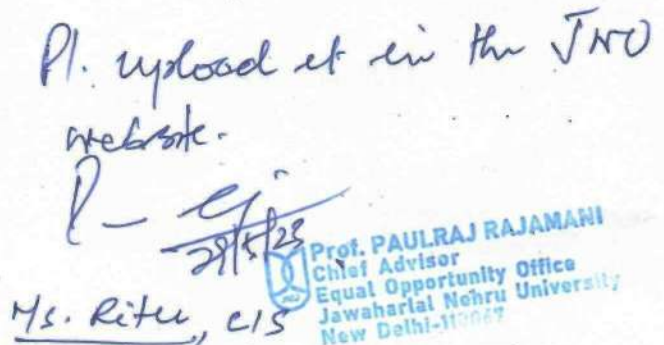 Pl. upload it in the JNU
website.
29/5/23
Prof. PAULRAJ RAJAMANI
Chief Advisor
Equal Opportunity Office
Jawaharlal Nehru University
New Delhi-110067
Ms. Ritu, CIS